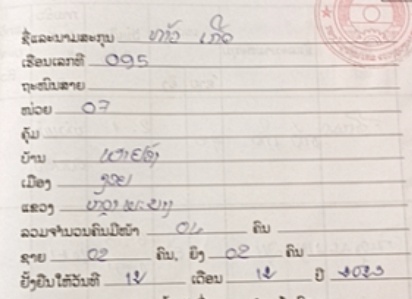 ຊື່ແລະນາມສະກຸນ ທ້າວ ເກີດ
ເຮືອນເລກທີ 095
ຖະໜົນສາຍ
ໜ່ວຍ 07
ຄຸ້ມ
ບ້ານ
ເມືອງ
ແຂວງ ຫຼວງພະບາງ
ລວມຈຳນວນຄົນມີໜ້າ 04 ຄົນ
ຊາຍ 02 ຄົນ, ຍິງ 02 ຄົນ
ຢັ້ງຢືນໃຫ້ວັນທີ 12 ເດືອນ 12 ປີ